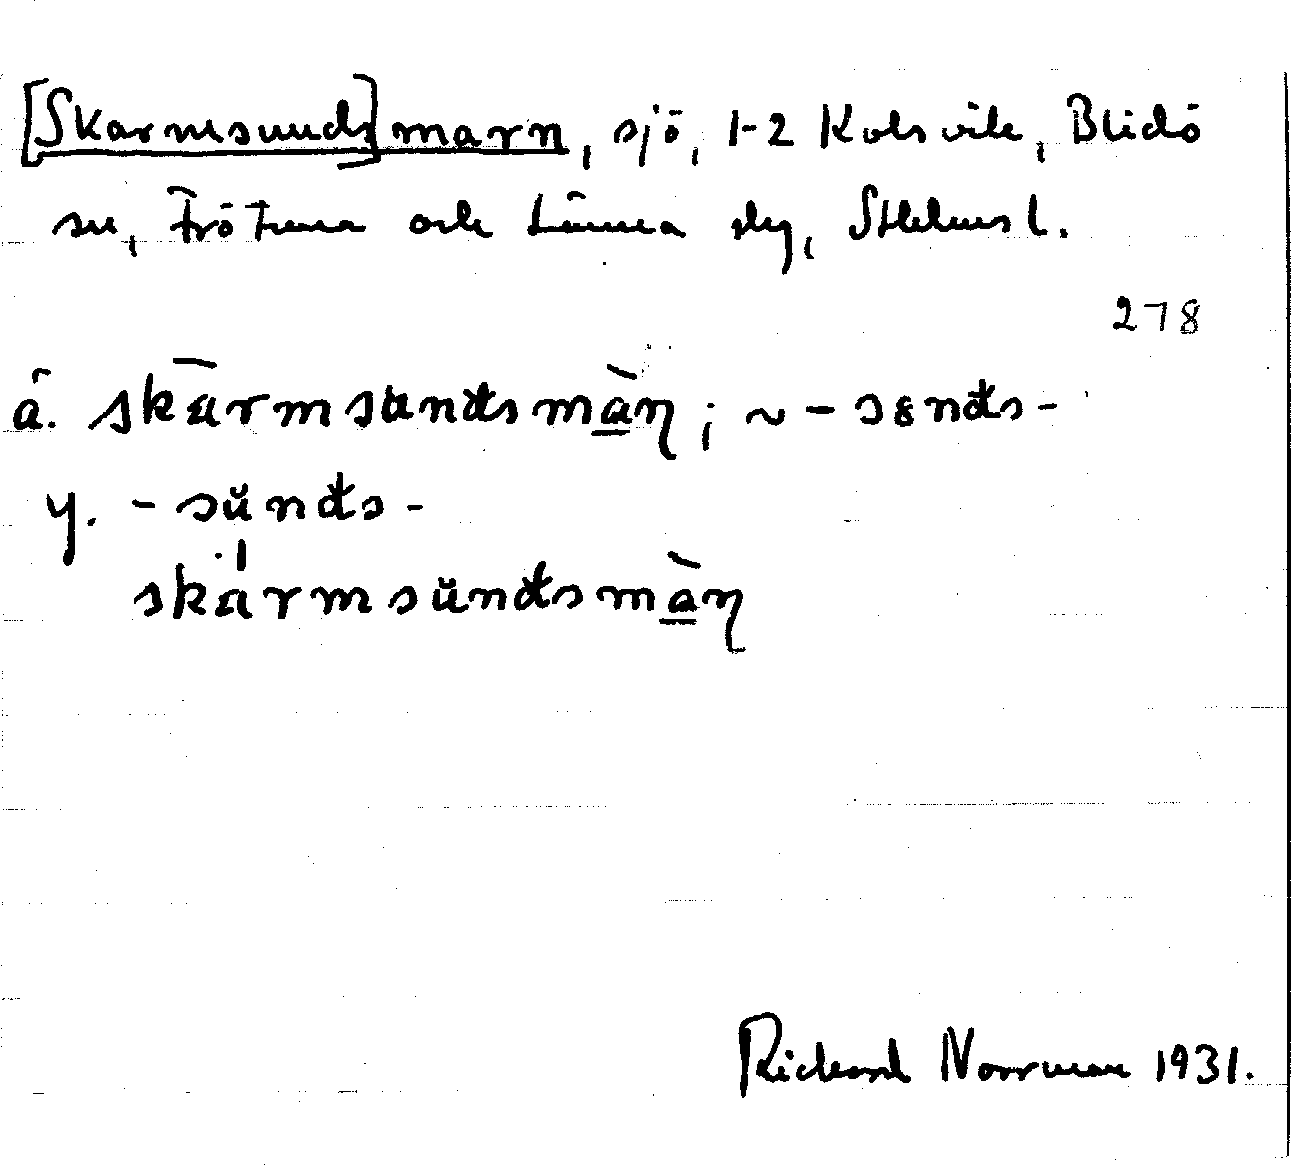 [Skarmsunds]marn, sjö, 1-2 Kolsvik, Blidö
sn, Frötuna och Länna slg, Sthlms l.
278
å. skarmsundsmàn; ~ - sends-
y. - sŭnds -
skarmsŭndsmàn
Rickard Norrman 1931.